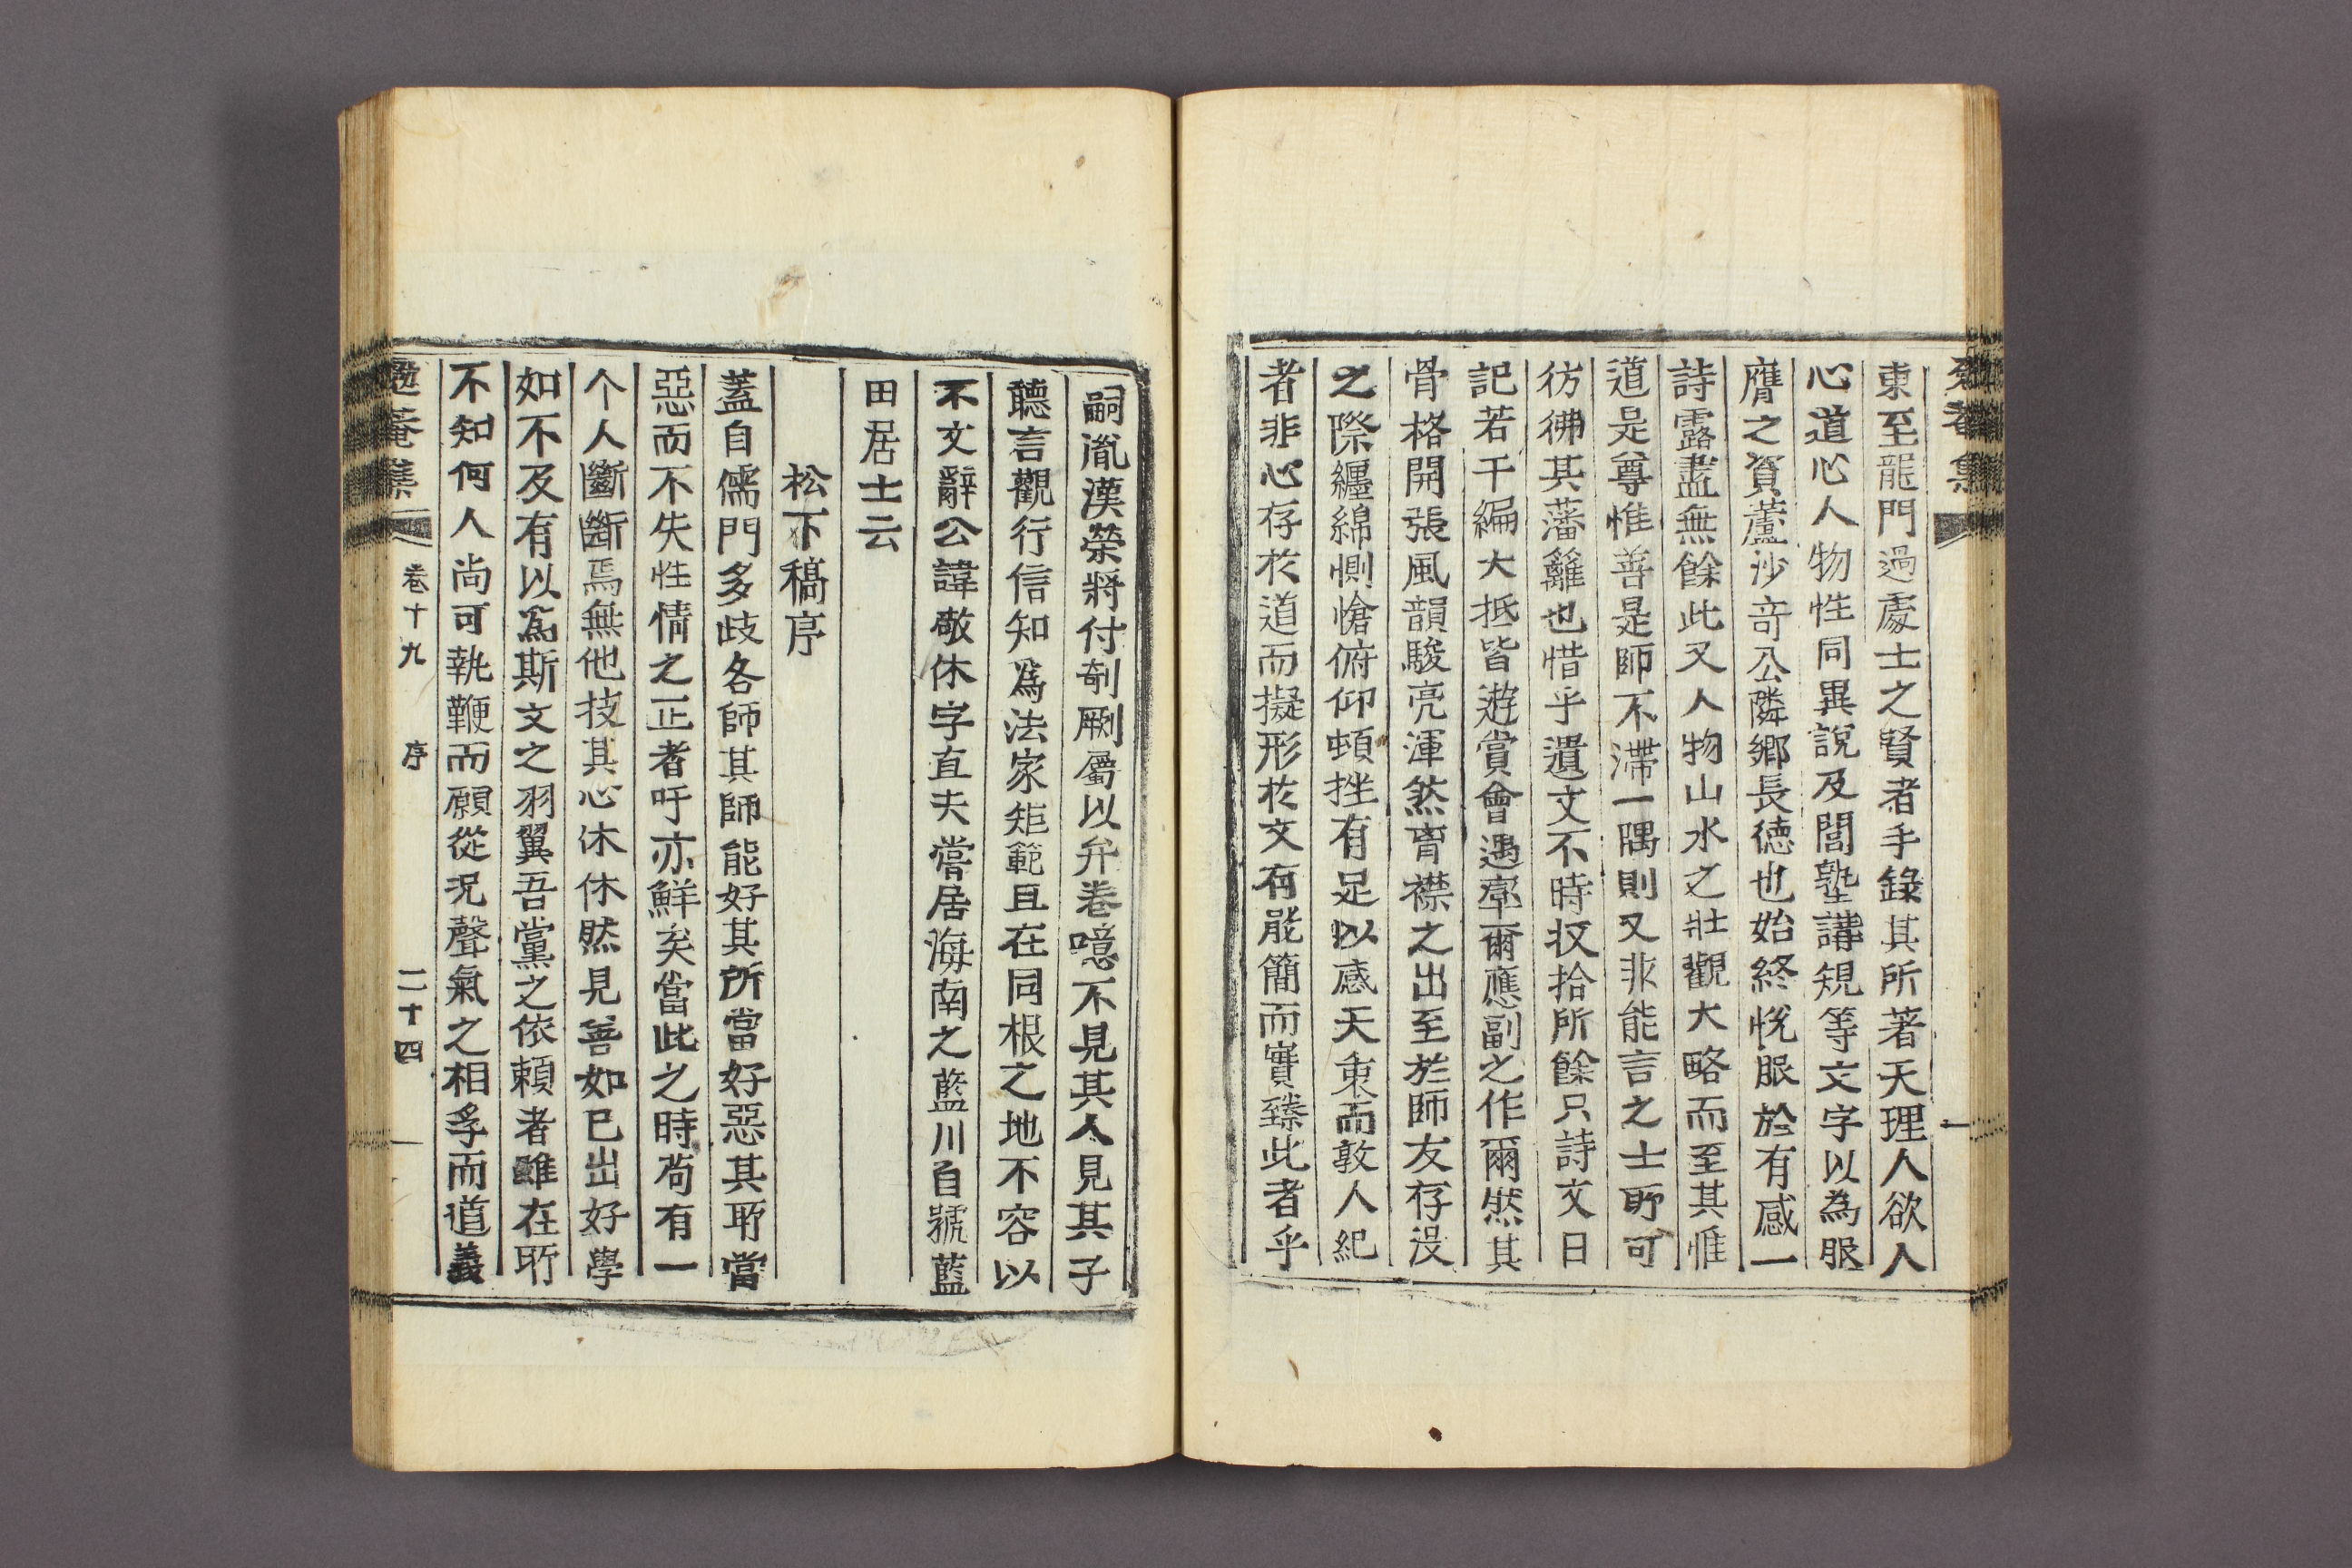 東至龍門過處士之賢者手錄其所著天理人欲人
心道心人物性同異說及閭塾講規等文字以為服
膺之資蘆沙竒公隣鄉長德也始終悅服於有感一
詩露盡無餘此又人物山水之壯觀大略而至其惟
道是尊惟善是師不滯一隅則又非能言之士所可
彷彿其藩籬也惜乎遺文不時收拾所餘只詩文日
記若干編大抵皆遊賞會遇率爾應副之作爾然其
骨格開張風韻駿亮渾然胷襟之出至於師友存沒
之際纏綿惻愴俯仰頓挫有足以感天衷而敦人紀
者非心存於道而擬形於文有能簡而實臻此者乎
嗣胤漢榮將付剞劂屬以弁卷噫不見其人見其子
聽言觀行信知爲法家矩範且在同根之地不容以
不文辭公諱敬休字直夫嘗居海南之藍川自號藍
田居士云
松下稿序
蓋自儒門多歧各師其師能好其所當好惡其所當
惡而不失性情之正者吁亦鮮矣當此之時苟有一
个人斷斷焉無他技其心休休然見善如己出好學
如不及有以爲斯文之羽翼吾黨之依賴者雖在所
不知何人尚可執鞭而願從況聲氣之相孚而道義
菴集 卷十九 序 二十四